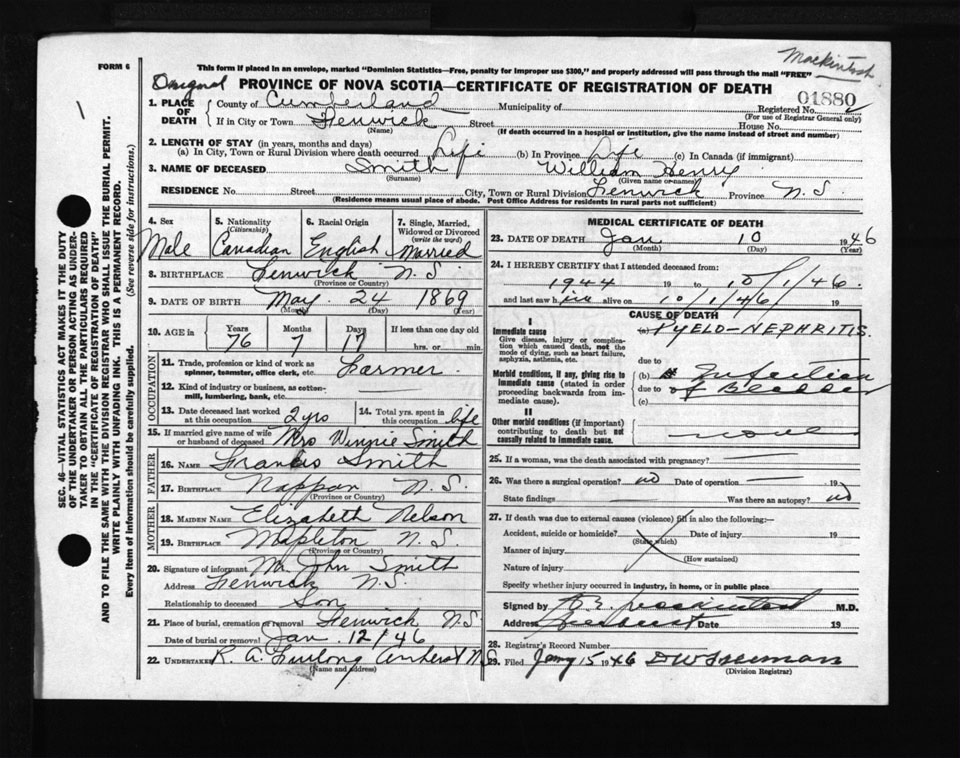 Mackintosh
FORM 6
This form if placed in an envelope, marked "Dominion Statistics—Free, penalty for improper use $300," and properly addressed will pass through the mail "FREE"
PROVINCE OF NOVA SCOTIA—CERTIFICATE OF REGISTRATION OF DEATH
01880
1. PLACE OF DEATH { County of Cumberland Municipality of Registered No.
(For use of Registrar General only)
If in City or Town Fenwick Street House No.
(Name) (If death occurred in a hospital or institution, give the name instead of street and number)
2. LENGTH OF STAY (in years, months and days)
(a) In City, Town or Rural Division where death occurred Life (b) In Province Life (c) In Canada (if immigrant)
3. NAME OF DECEASED Smith William Henry
(Surname) (Given name or names)
RESIDENCE No. Street City, Town or Rural Division Fenwick Province N.S.
(Residence means usual place of abode. Post Office Address for residents in rural parts not sufficient)
4. Sex Male
5. Nationality (Citizenship) Canadian
6. Racial Origin English
7. Single, Married, Widowed or Divorced (write the word) Married
8. BIRTHPLACE Fenwick N.S.
(Province or Country)
9. DATE OF BIRTH May 24 1869
(Month) (Day) (Year)
10. AGE in { Years 76 Months 7 Days 17 If less than one day old
hrs. or min.
OCCUPATION
11. Trade, profession or kind of work as spinner, teamster, office clerk, etc. Farmer
12. Kind of industry or business, as cotton-mill, lumbering, bank, etc.
13. Date deceased last worked at this occupation 2 yrs
14. Total yrs. spent in this occupation life
15. If married give name of wife or husband of deceased Mrs Winnie Smith
FATHER
16. NAME Francis Smith
17. BIRTHPLACE Nappan N.S.
(Province or Country)
MOTHER
18. MAIDEN NAME Elizabeth Nelson
19. BIRTHPLACE Mapleton N.S.
(Province or Country)
20. Signature of informant Mr. John Smith
Address Fenwick N.S.
Relationship to deceased Son
21. Place of burial, cremation or removal Fenwick N.S.
Date of burial or removal Jan. 12/46
22. UNDERTAKER R. A. Furlong Amherst N.S.
(Name and address)
MEDICAL CERTIFICATE OF DEATH
23. DATE OF DEATH Jan. 10 1946
(Month) (Day) (Year)
24. I HEREBY CERTIFY that I attended deceased from:
1944 19 to 10/1/46.
and last saw him alive on 10/1/46 19
CAUSE OF DEATH
I
Immediate cause (a) PYELO-NEPHRITIS.
Give disease, injury or complication which caused death, not the mode of dying, such as heart failure, asphyxia, asthenia, etc.
due to
Morbid conditions, if any, giving rise to immediate cause (stated in order proceeding backwards from immediate cause).
(b) Infection
due to of Bladder
(c)
II
Other morbid conditions (if important) contributing to death but not causally related to immediate cause. none
25. If a woman, was the death associated with pregnancy?
26. Was there a surgical operation? no Date of operation 19
State findings Was there an autopsy? no
27. If death was due to external causes (violence) fill in also the following:-
Accident, suicide or homicide? Date of injury 19
(State which)
Manner of injury
(How sustained)
Nature of injury
Specify whether injury occurred in industry, in home, or in public place
Signed by Mackintosh M.D.
Address Amherst Date 19
28. Registrar's Record Number
29. Filed Jany 15 1946 D W Freeman
(Division Registrar)
SEC. 46—VITAL STATISTICS ACT MAKES IT THE DUTY
OF THE UNDERTAKER OR PERSON ACTING AS UNDER-
TAKER TO OBTAIN ALL THE PARTICULARS REQUIRED
IN THE "CERTIFICATE OF REGISTRATION OF DEATH"
AND TO FILE THE SAME WITH THE DIVISION REGISTRAR WHO SHALL ISSUE THE BURIAL PERMIT.
WRITE PLAINLY WITH UNFADING INK. THIS IS A PERMANENT RECORD.
Every item of information should be carefully supplied. (See reverse side for instructions.)